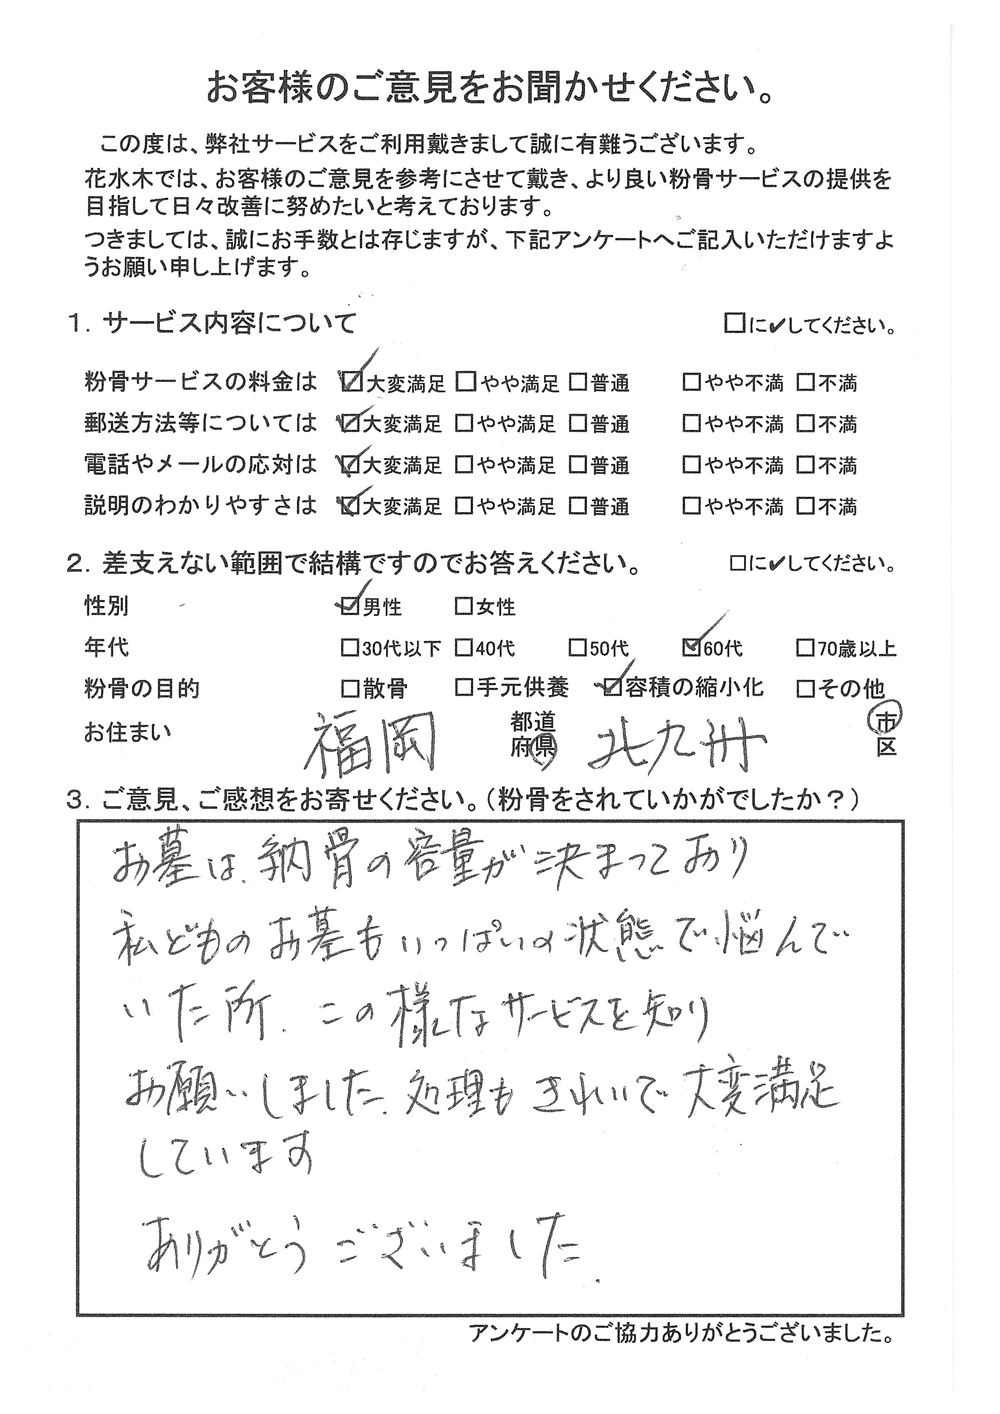 お客様のご意見をお聞かせください。
この度は、弊社サービスをご利用戴きまして誠に有難うございます。
花水木では、お客様のご意見を参考にさせて戴き、より良い粉骨サービスの提供を
目指して日々改善に努めたいと考えております。
つきましては、誠にお手数とは存じますが、下記アンケートへご記入いただけますよ
うお願い申し上げます。
1．サービス内容について □に✔してください。
粉骨サービスの料金は ☑大変満足 □やや満足 □普通 □やや不満 □不満
郵送方法等については ☑大変満足 □やや満足 □普通 □やや不満 □不満
電話やメールの応対は ☑大変満足 □やや満足 □普通 □やや不満 □不満
説明のわかりやすさは ☑大変満足 □やや満足 □普通 □やや不満 □不満
2．差支えない範囲で結構ですのでお答えください。 □に✔してください。
性別 ☑男性 □女性
年代 □30代以下 □40代 □50代 ☑60代 □70歳以上
粉骨の目的 □散骨 □手元供養 ☑容積の縮小化 □その他
お住まい 福岡 都道府県 北九州 市区
3．ご意見、ご感想をお寄せください。（粉骨をされていかがでしたか？）
お墓は、納骨の容量が決まっており
私どものお墓もいっぱいの状態で悩んで
いた所、この様なサービスを知り
お願いしました。処理もきれいで大変満足
しています
ありがとうございました。
アンケートのご協力ありがとうございました。